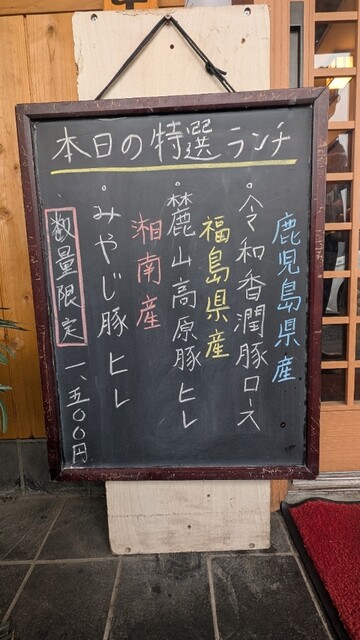 本日の特選ランチ
鹿児島県産
。令和香潤豚ロース
福島県産
。麓山高原豚ヒレ
湘南産
。みやじ豚ヒレ
数量限定 一五〇〇円